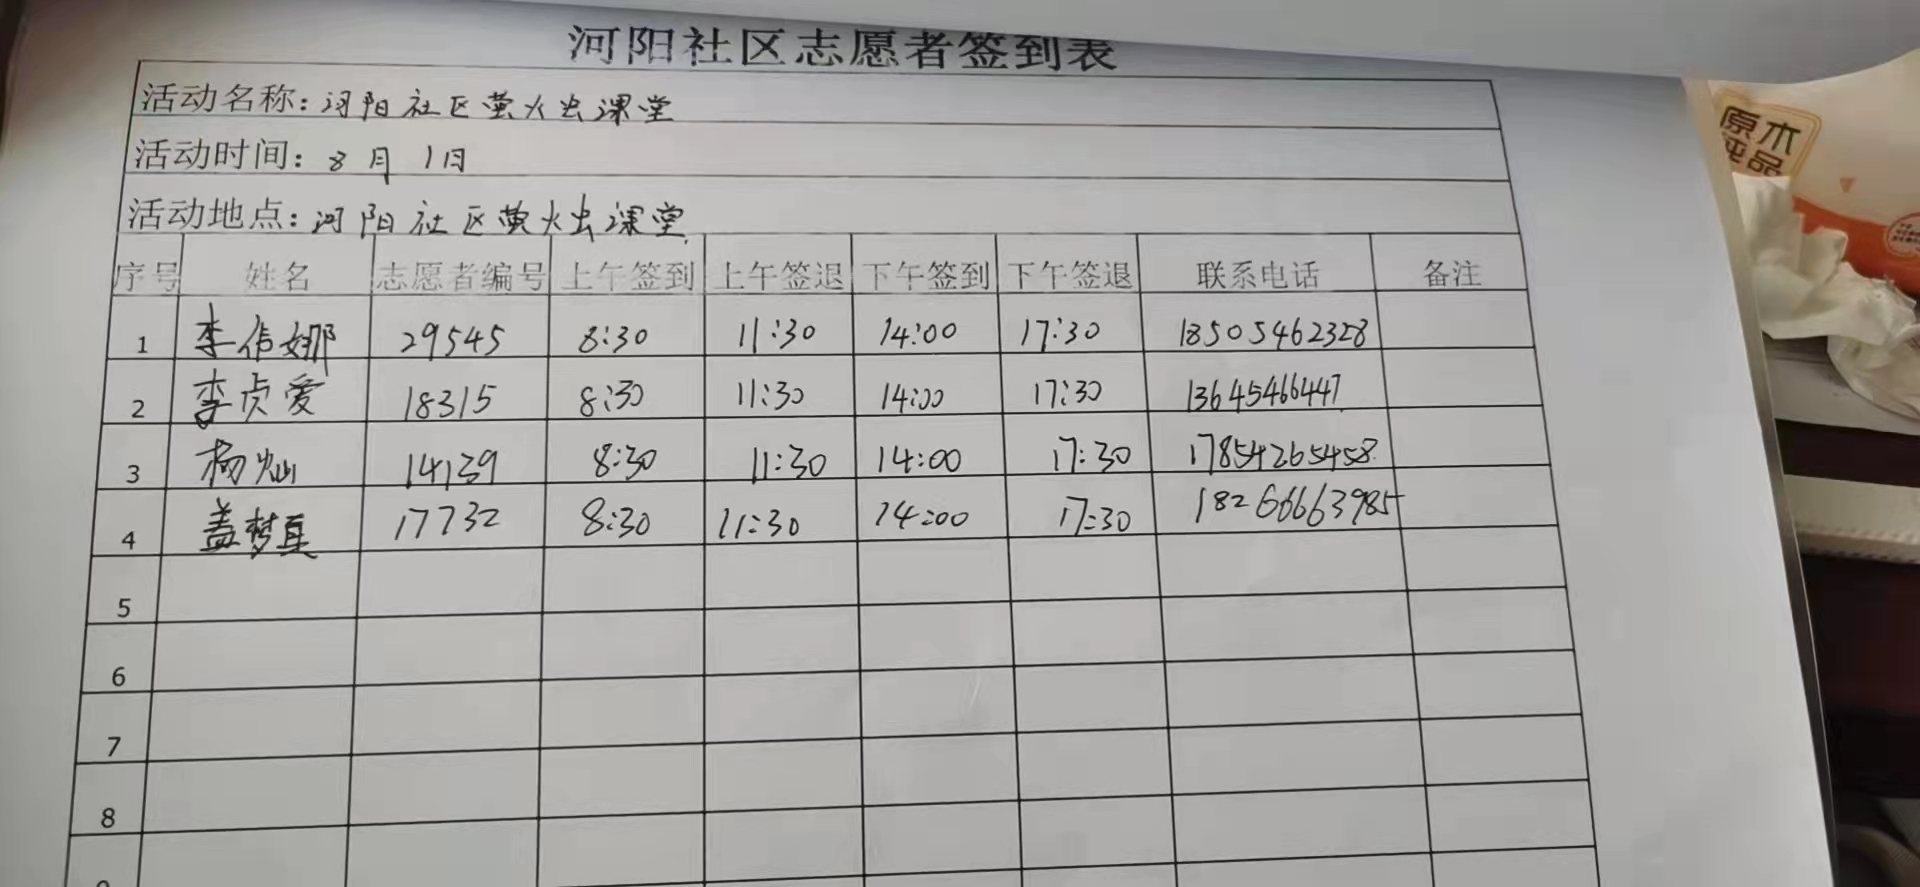 河阳社区志愿者签到表
活动名称: 河阳社区萤火虫课堂
活动时间: 8月1日
活动地点: 河阳社区萤火虫课堂
序号 姓名 志愿者编号 上午签到 上午签退 下午签到 下午签退 联系电话 备注
1 李倩娜 29545 8:30 11:30 14:00 17:30 18505462328
2 李贞爱 18315 8:30 11:30 14:00 17:30 13645466447
3 杨灿 14139 8:30 11:30 14:00 17:30 17854265458
4 盖梦真 17732 8:30 11:30 14:00 17:30 18266663985
5
6
7
8
原木
纯品